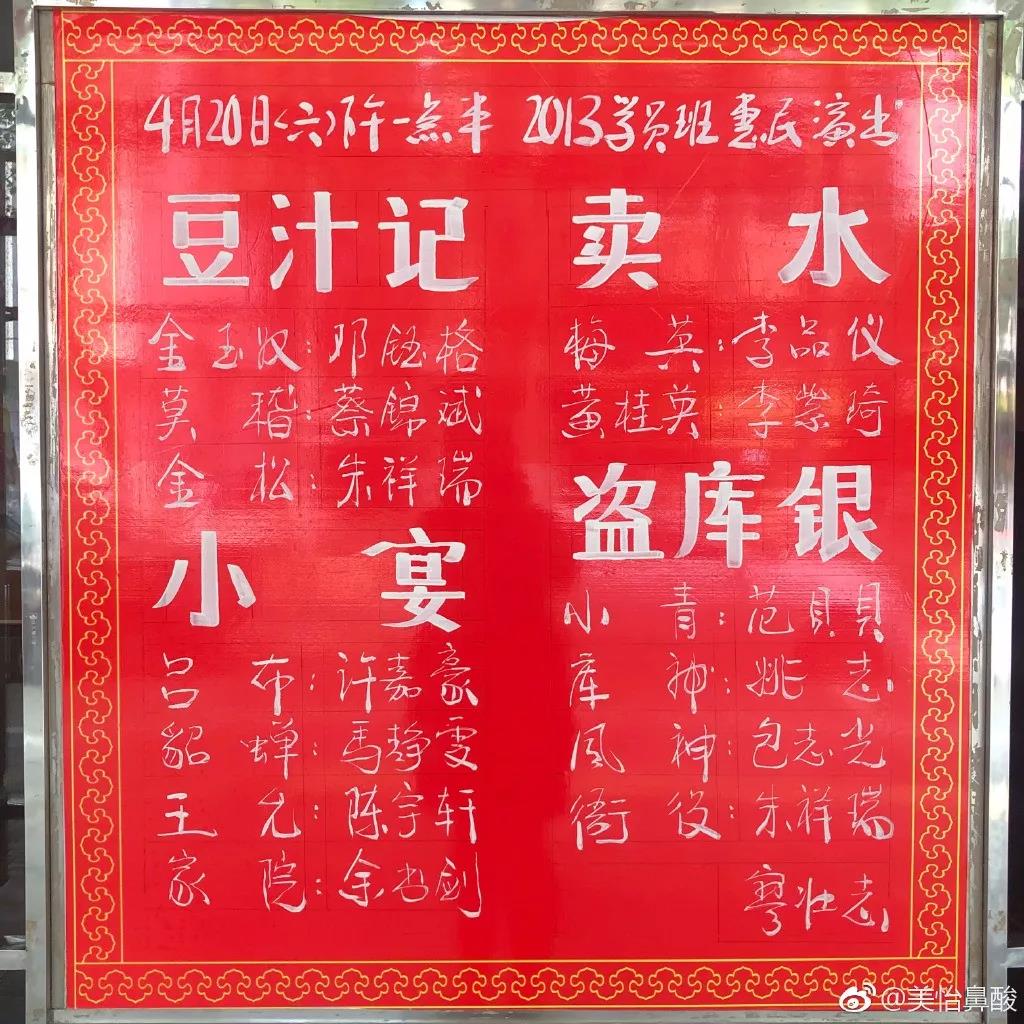 4月20日(六)下午一点半 2013学员班惠民演出
豆汁记
金玉奴：邓钰格
莫稽：蔡锦斌
金松：朱祥瑞
小宴
吕布：许嘉豪
貂蝉：马静雯
王允：陈宇轩
家院：余书剑
卖水
梅英：李品仪
黄桂英 李紫琦
盗库银
小青：范贝贝
库神：姚志
风神：包志光
衙役：朱祥瑞
廖壮志
@美怡鼻酸